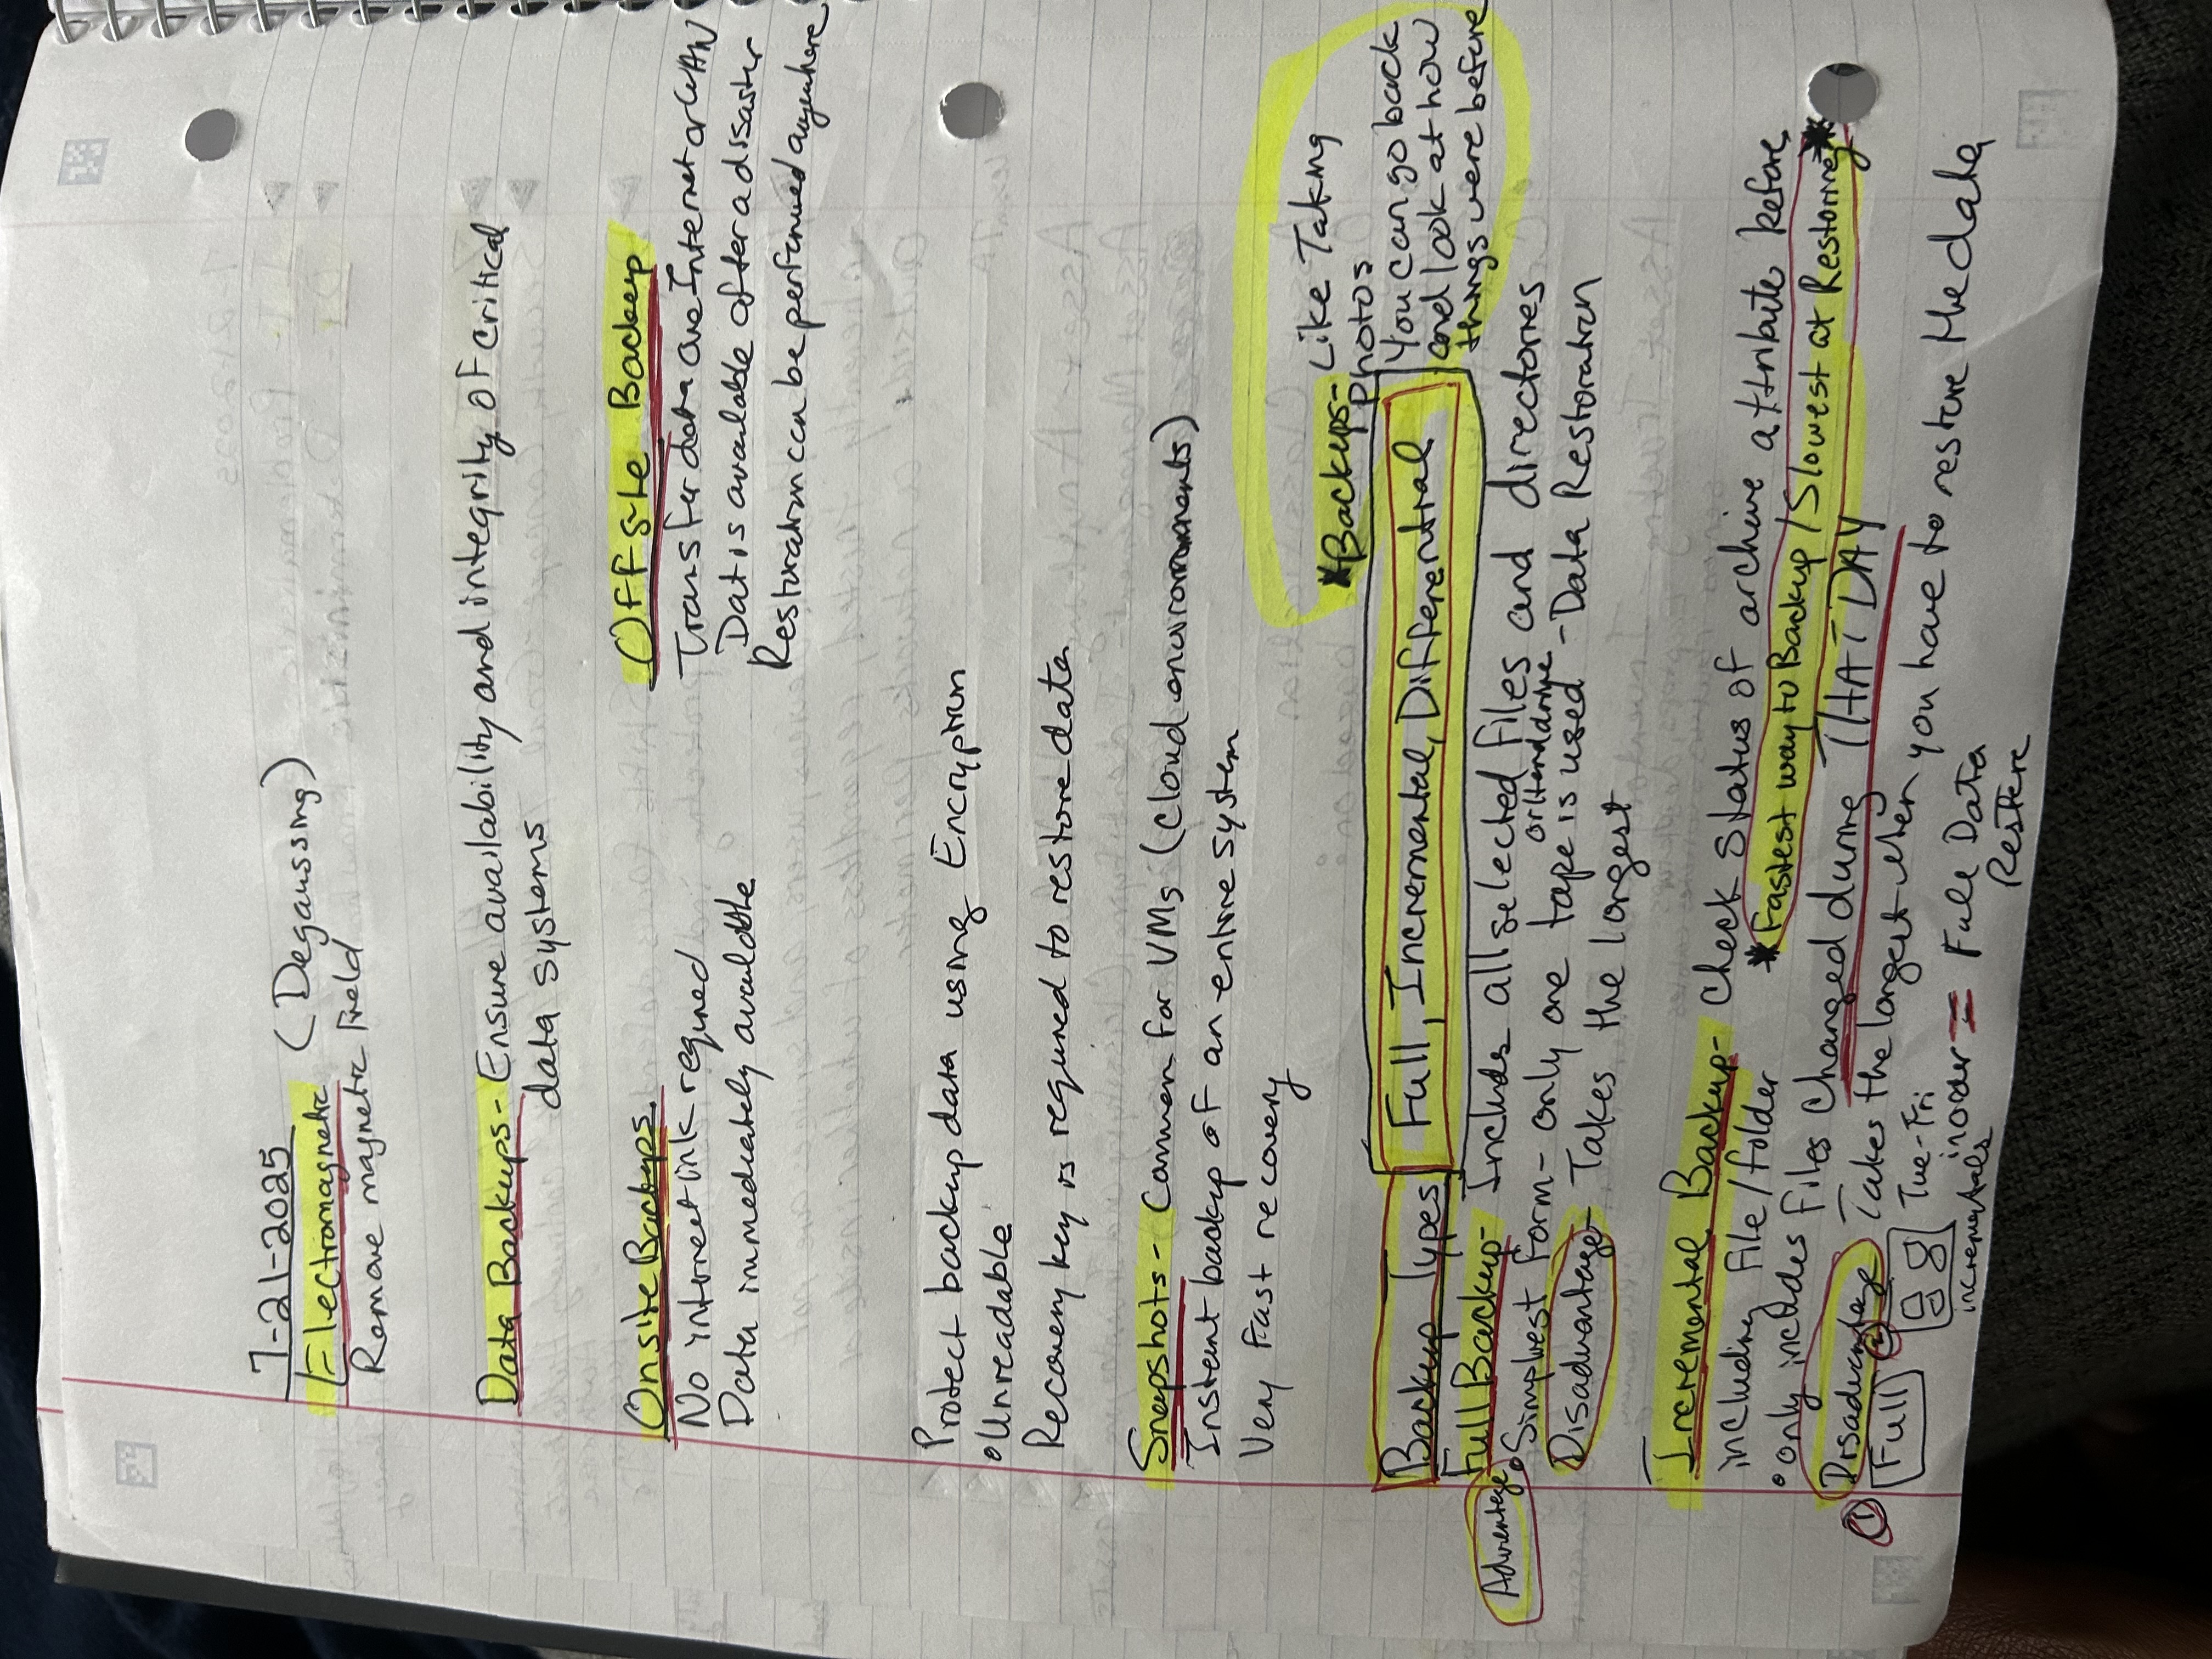 7-21-2025
Electromagnetic (Degaussing)
Remove magnetic field
Data Backups - Ensure availability and integrity of critical
data systems
Onsite Backups.
No internet link required
Data immediately available
Offsite Backup
Transfer data ove Internet or WAN
Dat is available after a disaster
Restoration can be performed anywhere
Protect backup data using Encryption
•Unreadable
Recovery key is required to restore data
Snapshots - Common for VMs (cloud environments)
Instant backup of an entire system
Very Fast recovery
*Backups - Like Taking
photos
You can go back
and look at how
things were before
Backup Types Full, Incremental, Differential
Full Backup - Includes all selected files and directories
Advantage
•Simplest form - only one tape or Hard drive is used - Data Restoration
Disadvantage - Takes the longest
Incremental Backup - Check status of archive attribute before
including file/folder
*Fastest way to Backup / Slowest at Restoring*
•only includes files changed during THAT DAY
Disadvantage Takes the longest when you have to restore the data
① Full ② Tue-Fri
incrementals in order = Full Data
Restore